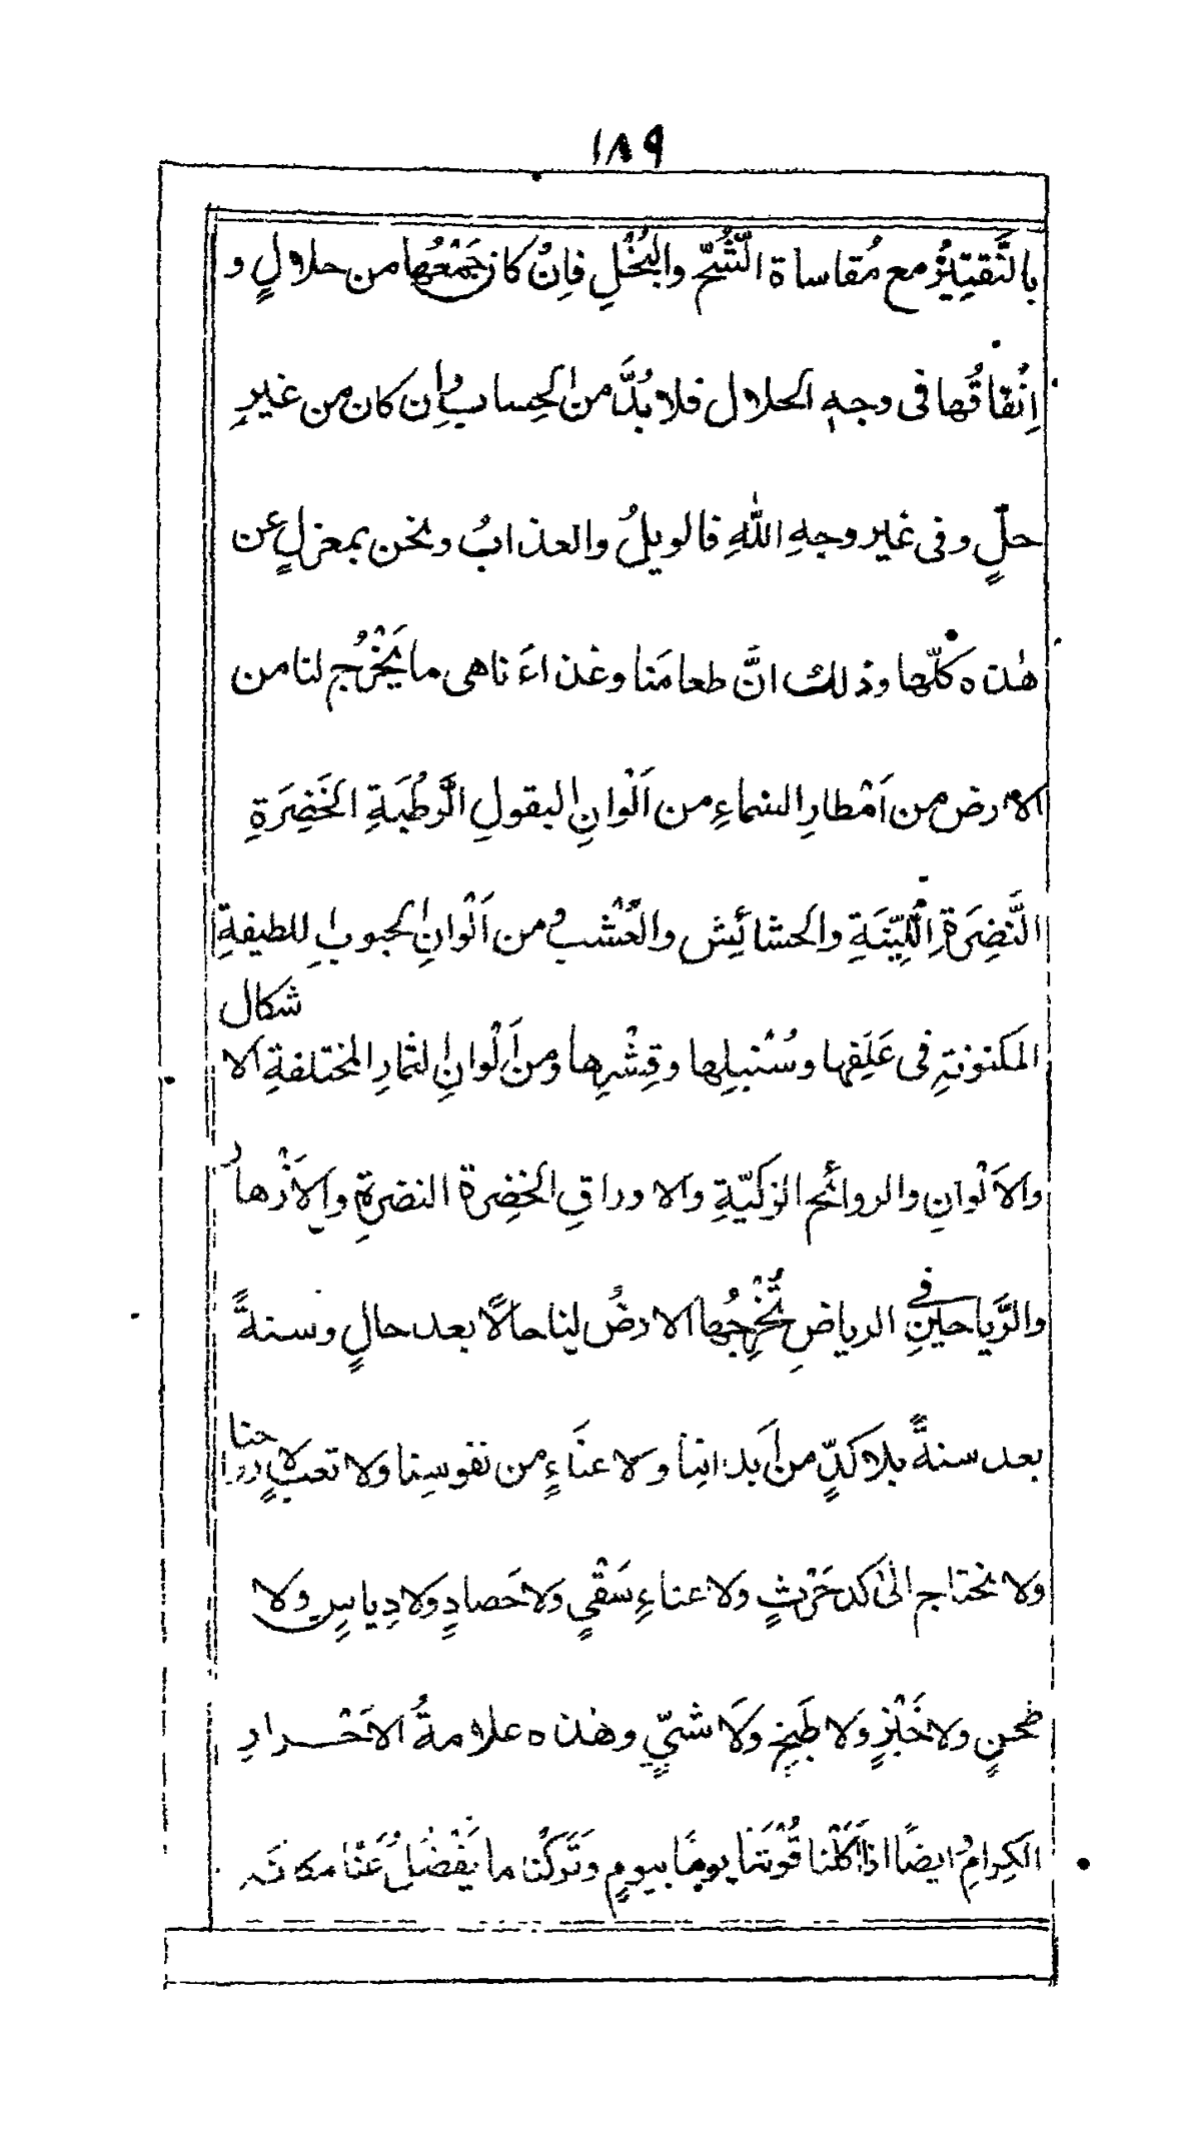 ١٨٩
بالتَّقتِيْرِ مع مُقاساة الشُّحِّ والبُخْلِ فاِنْ كان جَمْعُها من حلالٍ و
اِنْفاقُها فى وجهِ الحلال فلا بُدَّ من الحِساب واِن كان من غيرِ
حلٍّ وفى غير وجهِ اللهِ فالويلُ والعذابُ ونحن بمعزلٍ عن
هٰذه كلّها وذلك انَّ طعامَنا وغذاءَ ناهى ما يَخْرُج لنا من
الارض من اَمْطارِ السماءِ من اَلْوانِ البقولِ الرَّطْبَةِ الخَضِرَةِ
النَّضِرَةِ اللَّيِّنَةِ والحشائِش والعُشْب ومن اَلْوانِ الحبوبِ اللطيفةِ
المكنونةِ فى غَلَفِها وسُنْبلِها وقِشْرِها ومن اَلْوانِ الثمارِ المختلفةِ الا
شكال
والاَلْوانِ والروائحِ الزكيّةِ والاوراقِ الخضِرة النضرةِ والاَزْهارِ
والرَّياحينِ فى الرياضِ تُخْرِجُها الارضُ لنا حالًا بعد حالٍ وسنةً
بعد سنةً بلا كدٍّ من اَبدانِنا ولا عنَاءٍ من نفوسِنا ولا تعبٍ لارواحنا
ولا نحتاج الىٰ كد حَرْثٍ ولا عناءِ سَقْيٍ ولا حَصادٍ ولا دِياسٍ ولا
طحنٍ ولا خَبْزٍ ولا طَبخٍ ولَا شىٍّ وهٰذه علامةُ الاَحْرارِ
الكِرامِ ايضًا اذا اَكَلْنا قُوْتَنا يومًا بيومٍ وتَرَكْنا ما يَفْضُلُ عَنَّا مكانَه